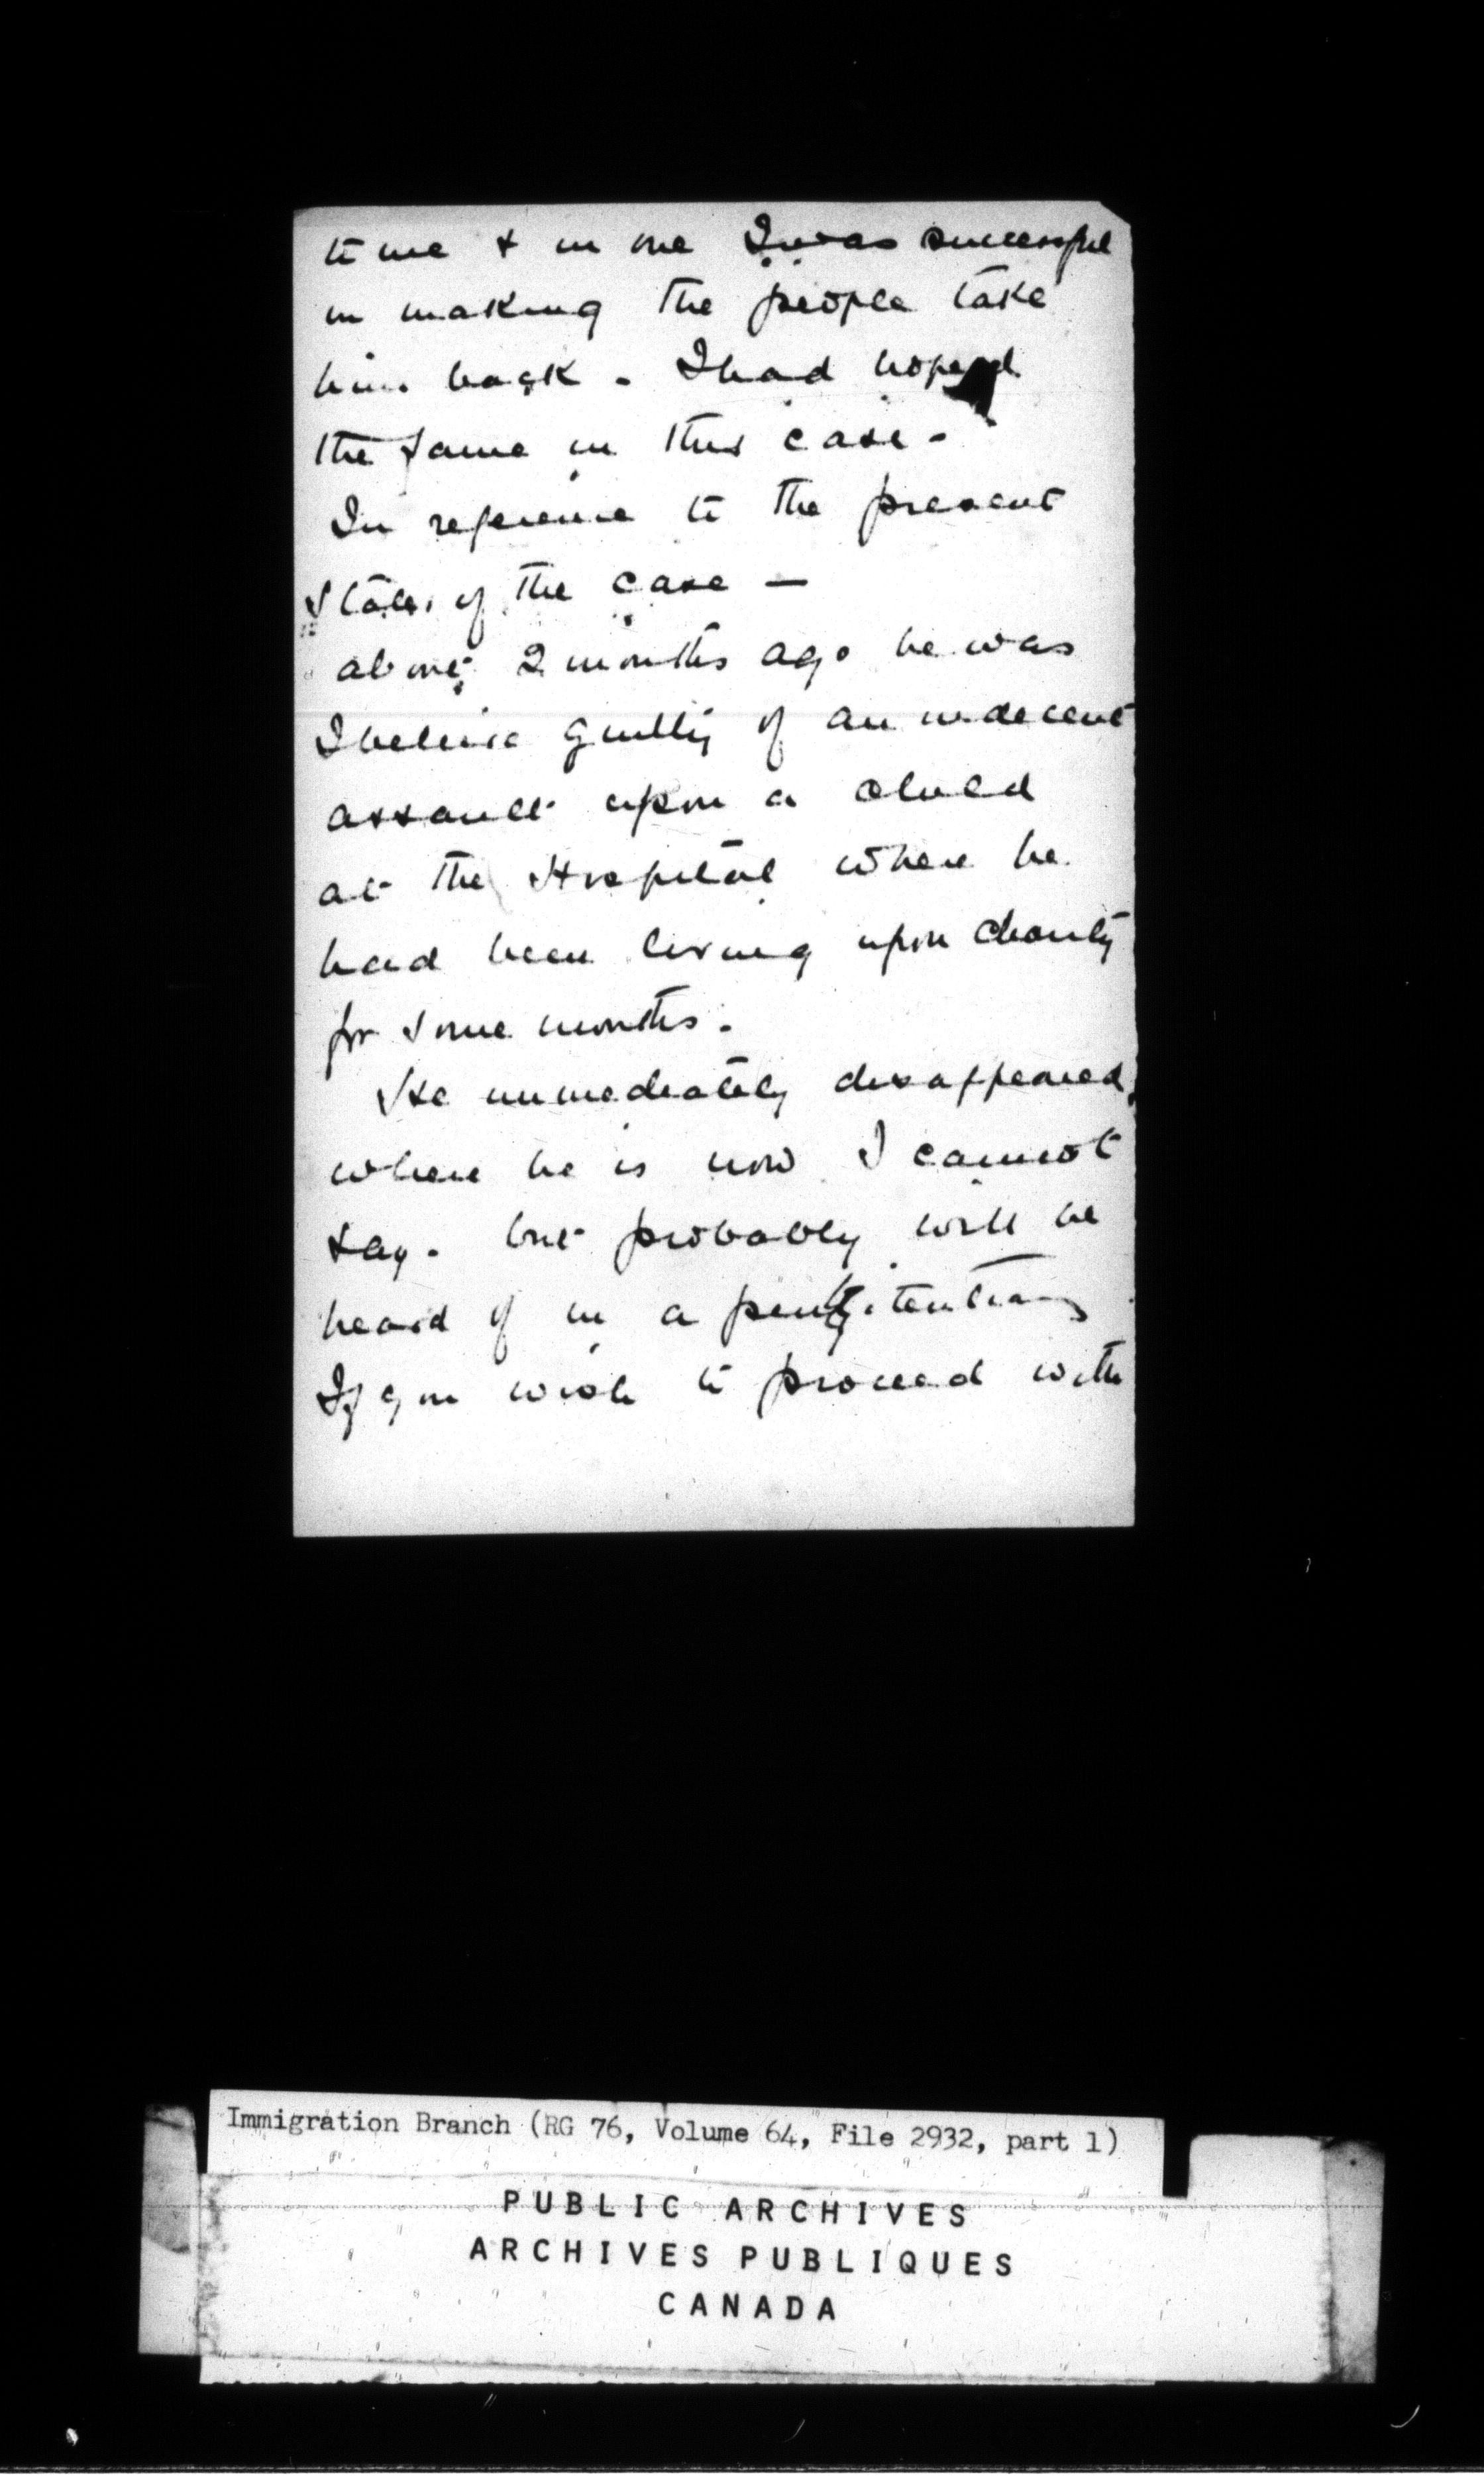 to me & in one I was successful
in making the people take
him back. I had hoped
the same in this case -
In reference to the present
state of the case —
about 2 months ago he was
I believe guilty of an indecent
assault upon a child
at the Hospital where he
had been living upon charity
for some months.
He immediately disappeared,
where he is now I cannot
say. but probably will be
heard of in a penitentiary
If you wish to proceed with
Immigration Branch (RG 76, Volume 64, File 2932, part 1)
PUBLIC ARCHIVES
ARCHIVES PUBLIQUES
CANADA